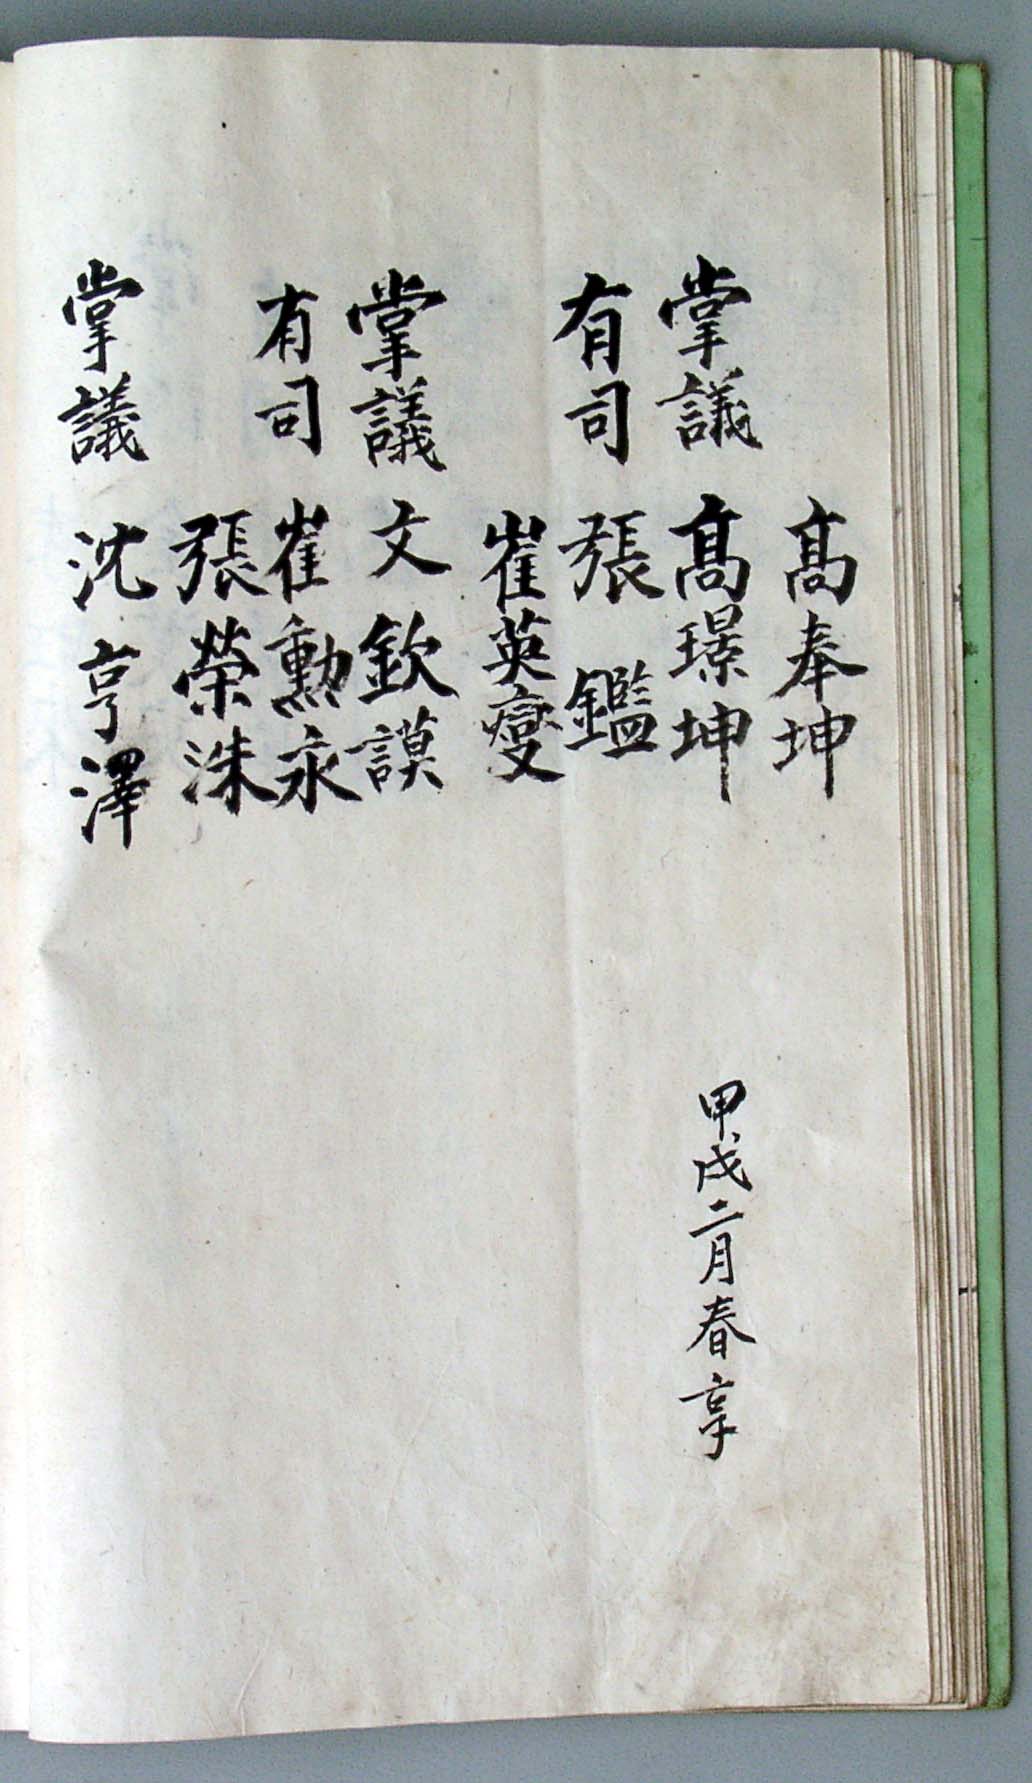 高奉坤
掌議 高璟坤 甲戌二月春享
有司 張鑑
崔英燮
掌議 文欽謨
有司 崔勳永
張榮洙
掌議 沈亨澤